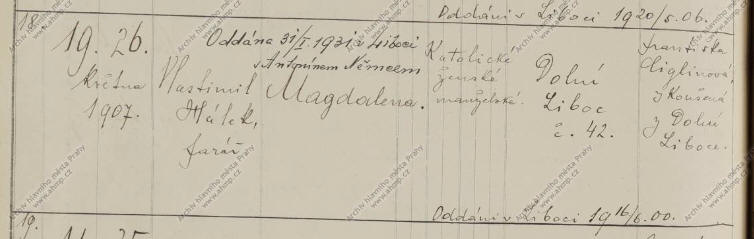 Oddáni v Liboci 1920/5.06.
18.
19. 26.
května
1907.
Vlastimil
Hálek,
farář
Oddána 31/I 1931 v Liboci
s Antonínem Němcem
Magdalena.
Katolické
ženské
manželské.
Dolní
Liboc
č. 42.
Františka
Ciglínová,
z Dolní
Liboce.
19.
Oddáni v Liboci 1916/6.00.
Archiv hlavního města Prahy
www.ahmp.cz